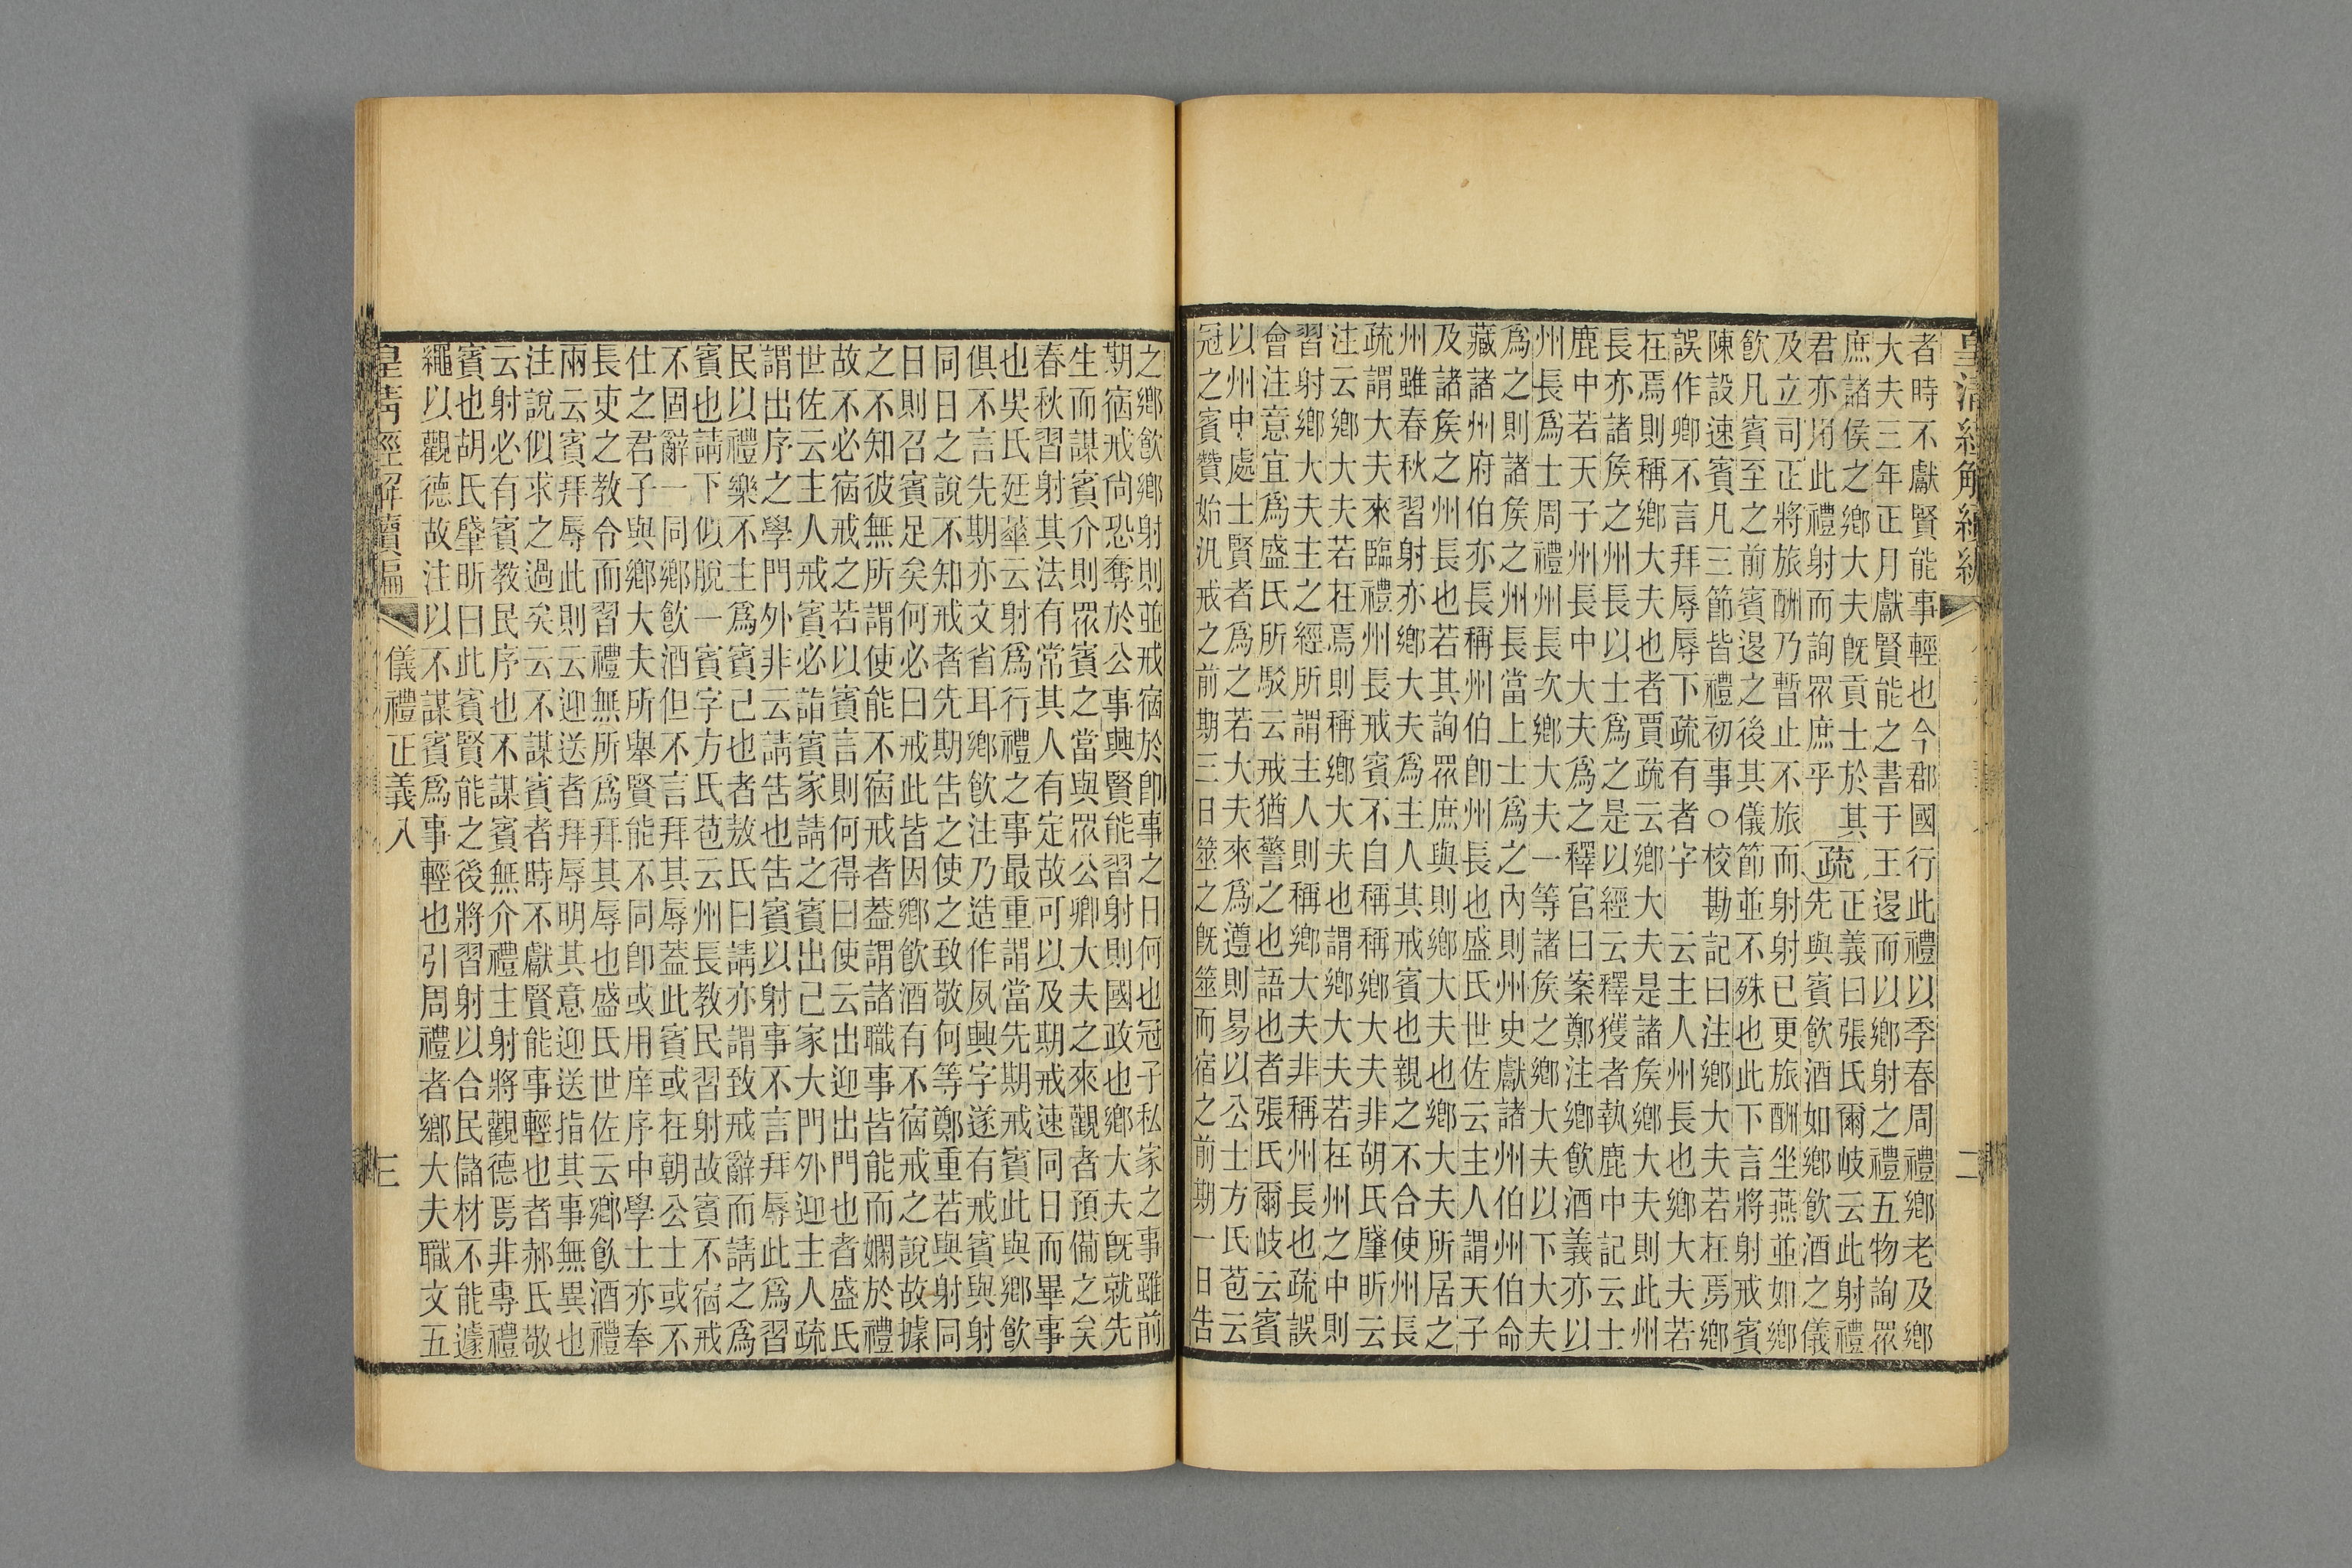 皇清經解續編
二
者時不獻賢能事輕也今郡國行此禮以季春周禮鄉老及鄉
大夫三年正月獻賢能之書于王退而以鄉射之禮五物詢眾
庶諸侯之鄉大夫旣貢士於其 正義曰張氏爾岐云此射禮
君亦用此禮射而詢眾庶乎 疏 先與賓飲酒如鄉飲酒之儀
及立司正將旅酬乃暫止不旅而射射已更旅酬坐燕並如鄉
飲凡賓至之前賓退之後其儀節並不殊也此下言將射戒賓
陳設速賓凡三節皆禮初事○校勘記曰注鄉大夫若在焉鄉
誤作卿不言拜辱辱下疏有者字 云主人州長也鄉大夫若
在焉則稱鄉大夫也者賈疏云鄉大夫是諸矦鄉大夫則此州
長亦諸矦之州長以士爲之是以經云釋獲者執鹿中記云士
鹿中若天子州長中大夫爲之釋官曰案鄭注鄉飲酒義亦以
州長爲士周禮州長次鄉大夫一等諸矦之鄉大夫以下大夫
爲之則諸矦之州長當上士爲之內則州史獻諸州伯州伯命
藏諸州府伯亦長稱州伯卽州長也盛氏世佐云主人謂天子
及諸矦之州長也若其詢眾庶與則鄉大夫也鄉大夫所居之
州雖春秋習射亦鄉大夫爲主人其戒賓也親之不合使州長
疏謂大夫來臨禮州長戒賓不自稱稱鄉大夫非胡氏肇昕云
注云鄉大夫若在焉則稱鄉大夫也謂鄉大夫若在州之中則
習射鄉大夫主之經所謂主人則稱鄉大夫非稱州長也疏誤
會注意宜爲盛氏所駁云戒猶警之也語也者張氏爾岐云賓
以州中處士賢者爲之若大夫來爲遵則易以公士方氏苞云
冠之賓贊始汎戒之前期三日筮之旣筮而宿之前期一日告
之鄉飲鄉射則並戒宿於卽事之日何也冠子私家之事雖前
期宿戒尙恐奪於公事興賢能習射則國政也鄉大夫旣就先
生而謀賓介則眾賓之當與眾公卿大夫之來觀者預備之矣
春秋習射其法有常其人有定故可以及期戒速同日而畢事
也吳氏廷華云射爲行禮之事最重謂當先期戒賓此與鄉飲
俱不言先期亦文省耳鄉飲注乃造作夙興字遂有戒賓與射
同日之說不知戒者先期告之使之致敬何等鄭重若與射同
日則召賓足矣何必曰戒此皆因鄉飲酒有不宿戒之說故據
之不知彼無所謂使能不宿戒者葢謂諸職事皆能而嫻於禮
故不必宿戒之若以賓言則何得曰使云出迎出門也者盛氏
世佐云主人戒賓必詣賓家請之賓出己家大門外迎主人疏
謂出序之學門外非云請告也告賓以射事不言拜辱此爲習
民以禮樂不主爲賓己也者敖氏曰請亦謂致戒辭而請之爲
賓也請下似脫一賓字方氏苞云州長教民習射故賓不宿戒
不固辭一同鄉飲酒但不言拜其辱葢此賓或在朝公士或不
仕之君子與鄉大夫所舉賢能不同卽或用庠序中學士亦奉
長吏之教令而習禮無所爲拜其辱也盛氏世佐云鄉飲酒禮
兩云賓拜辱此則云迎送者拜辱明其意迎送指其事無異也
注說似求之過矣云不謀賓者時不獻賢能事輕也者郝氏敬
云射必有賓教民序也不謀賓無介禮主射將觀德焉非專禮
賓也胡氏肇昕曰此賓賢能之後將習射以合民儲材不能遽
繩以觀德故注以不謀賓爲事輕也引周禮者鄉大夫職文五
皇清經解續編
儀禮正義八
三